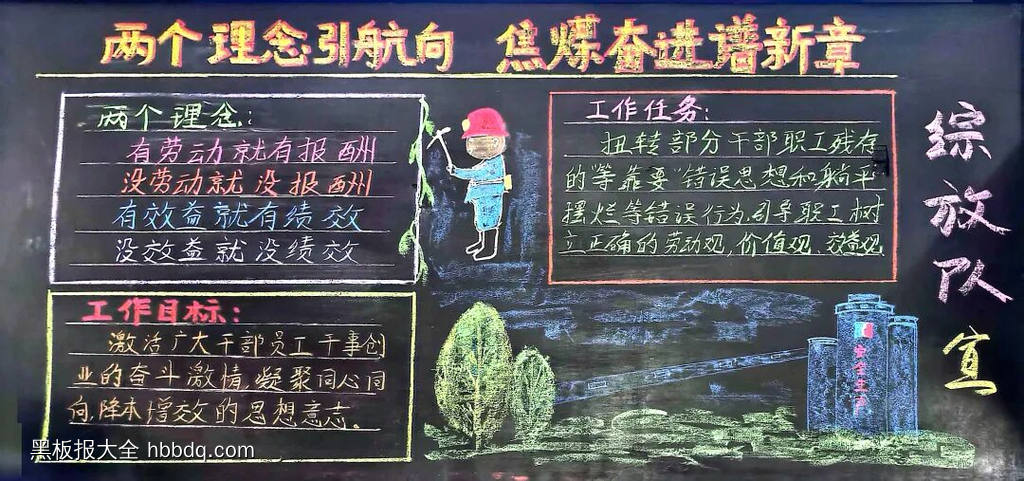 两个理念引航向 焦煤奋进谱新章
两个理念:
有劳动就有报酬
没劳动就没报酬
有效益就有绩效
没效益就没绩效
工作任务:
扭转部分干部职工残存
的“等靠要”错误思想和躺平
摆烂等错误行为,引导职工树
立正确的劳动观,价值观、效益观
工作目标:
激活广大干部员工干事创
业的奋斗激情,凝聚同心同
向,降本增效的思想意志。
安全生产
综放队宣
黑板报大全 hbbdq.com